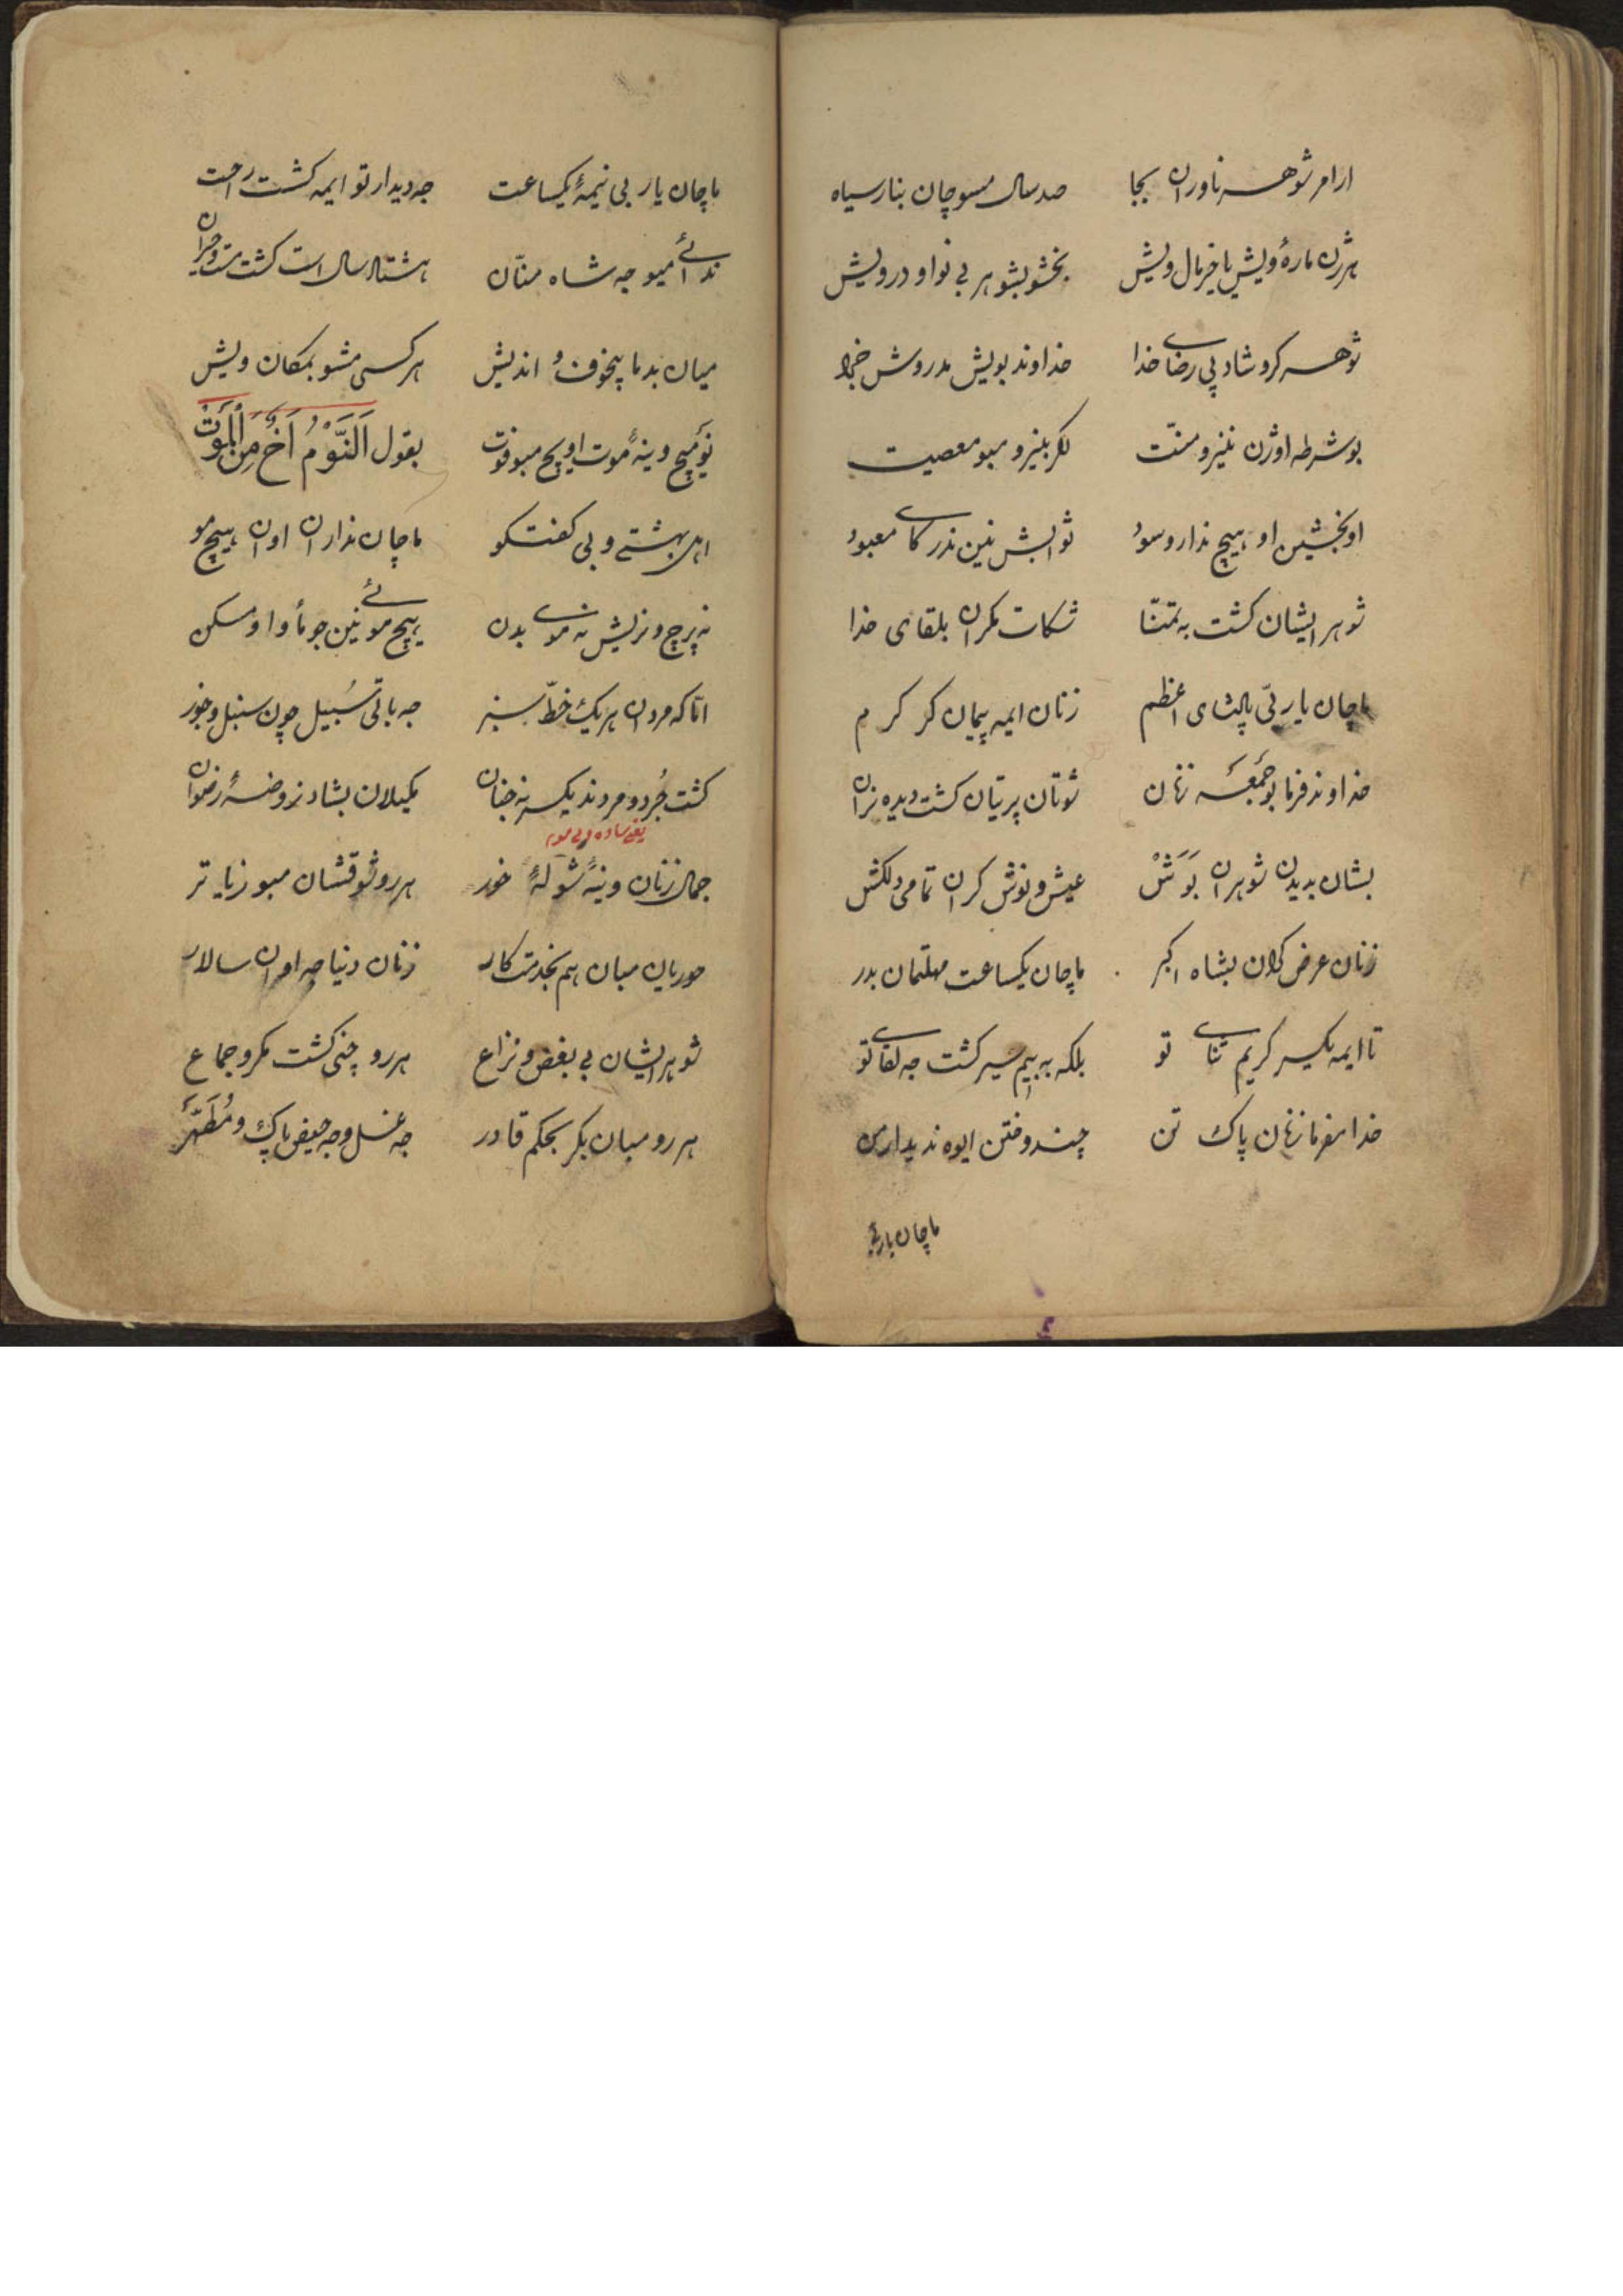 ارامر ژوهر ناوران بجا صد سال مسوچان بنار سیاه
هرژن ماره ویش یا خرمال ویش بخشو بشو هر بی نوا و درویش
ژوهر کرو شاد پی رضای خدا خداوند بویش مدروش
بو شرطه او ژن ننیزو منّت اکر بنیزو مبو معصیت
او بخشین او هیچ نداروسو ثوابش نین ندرکای معبود
شوهر ایشان کشت به تمنّا شکات مکران بلقای خدا
ماچان یا ربّی پادشای اعظم زنان ایمه پیمان کر کرم
خداوند فرما بو جمعه زنان شوتان پریتان کشت دیده نران
بشان بدیدن شوهران بوش عیش و نوش کران تمامی دلکش
زنان عرض کران بشاه اکبر ماچان یکساعت مهلتمان بدر
تا ایمه یکسر کریم ثنای تو بلکه به بیم سیر کشت جه لقای تو
خدا مفرما زنان پاک تن چند وختن ایوه ندیدارمن
ماچان یاربی
ماچان یار بی نیمهٔ یکساعت جه دیدار تو ایمه کشت راحت
ندائی میو جه شاه منّان هشتاد سال است کشت مست و حیران
میان بدما بیخوف و اندیش هر کسی مشو بمکان ویش
نومیچ وینهٔ موت اویچ مبو فوت بقول اَلنَّوْمُ اَخٌ مِنَ الْمَوْت
اهل بهشت وبی کفتکو ماچان نداران اوان هیچ مو
نه پرچ و نریش نه موی بدن هیچ موئی نین جو مأوا و مسکن
امّا که مردان هر یک خطّ سبز جه باتی سُبیل چون سنبل و خوز
کشت جُرد و مردند یکسر نه جنان یکیلان بشاد نروضهٔ رضوان
یعنی ساده و بی مو
جمال زنان وینهٔ شولهٔ خور هر رو شوقشان مبو زیاتر
حوریان مبان هم بخدمتکار زنان دنیا جه اوان سالار
شوهر ایشان بی بغض و نزاع هر رو چنی کشت مکرو جماع
هر رو مبان بکر بحکم قادر جه غسل و جه حیض پاک و مُطَهَّر